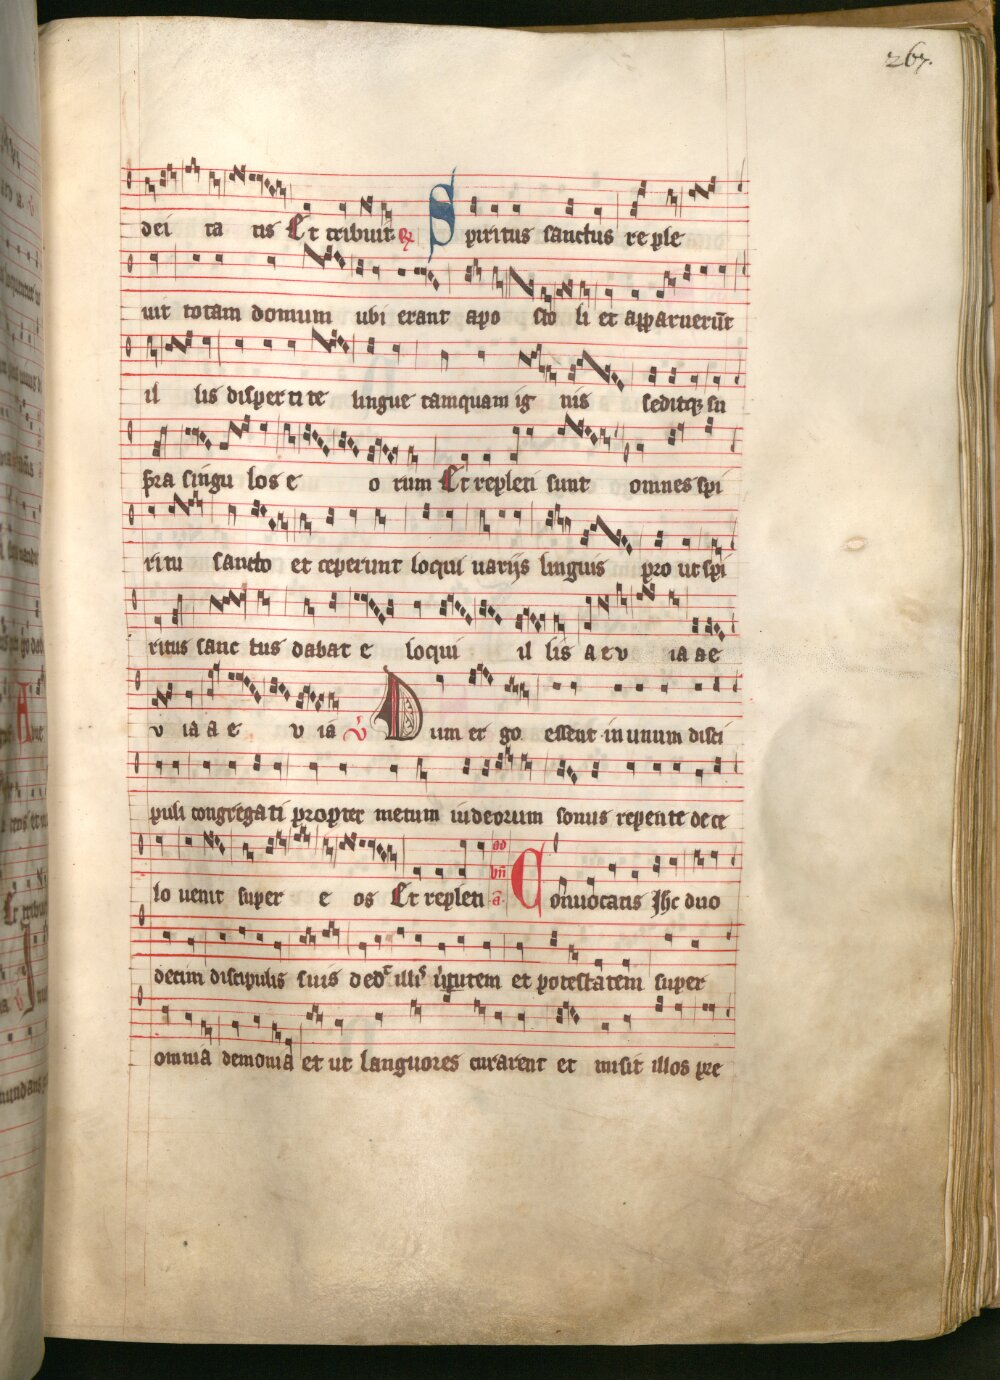 267.
dei ta tis Et tribuit R Spiritus sanctus re ple
uit totam domum ubi erant apo sto li et apparuerūt
il lis disper ti te lingue tamquam ig nis seditqz su
pra singu los e o rum Et repleti sunt omnes spi
ritu sancto et ceperunt loqui uarijs linguis pro ut spi
ritus sanc tus dabat e loqui il lis a e v ia a e
v ia a e v ia v Dum er go essent in unum disci
puli congregati propter metum iudeorum sonus repente de ce
lo uenit super e os Et repleti ad vn̄ a. Conuocatis Jhc duo
decim discipulis suis ded illis uirtutem et potestatem super
omnia demonia et ut languores curarent et misit illos pre